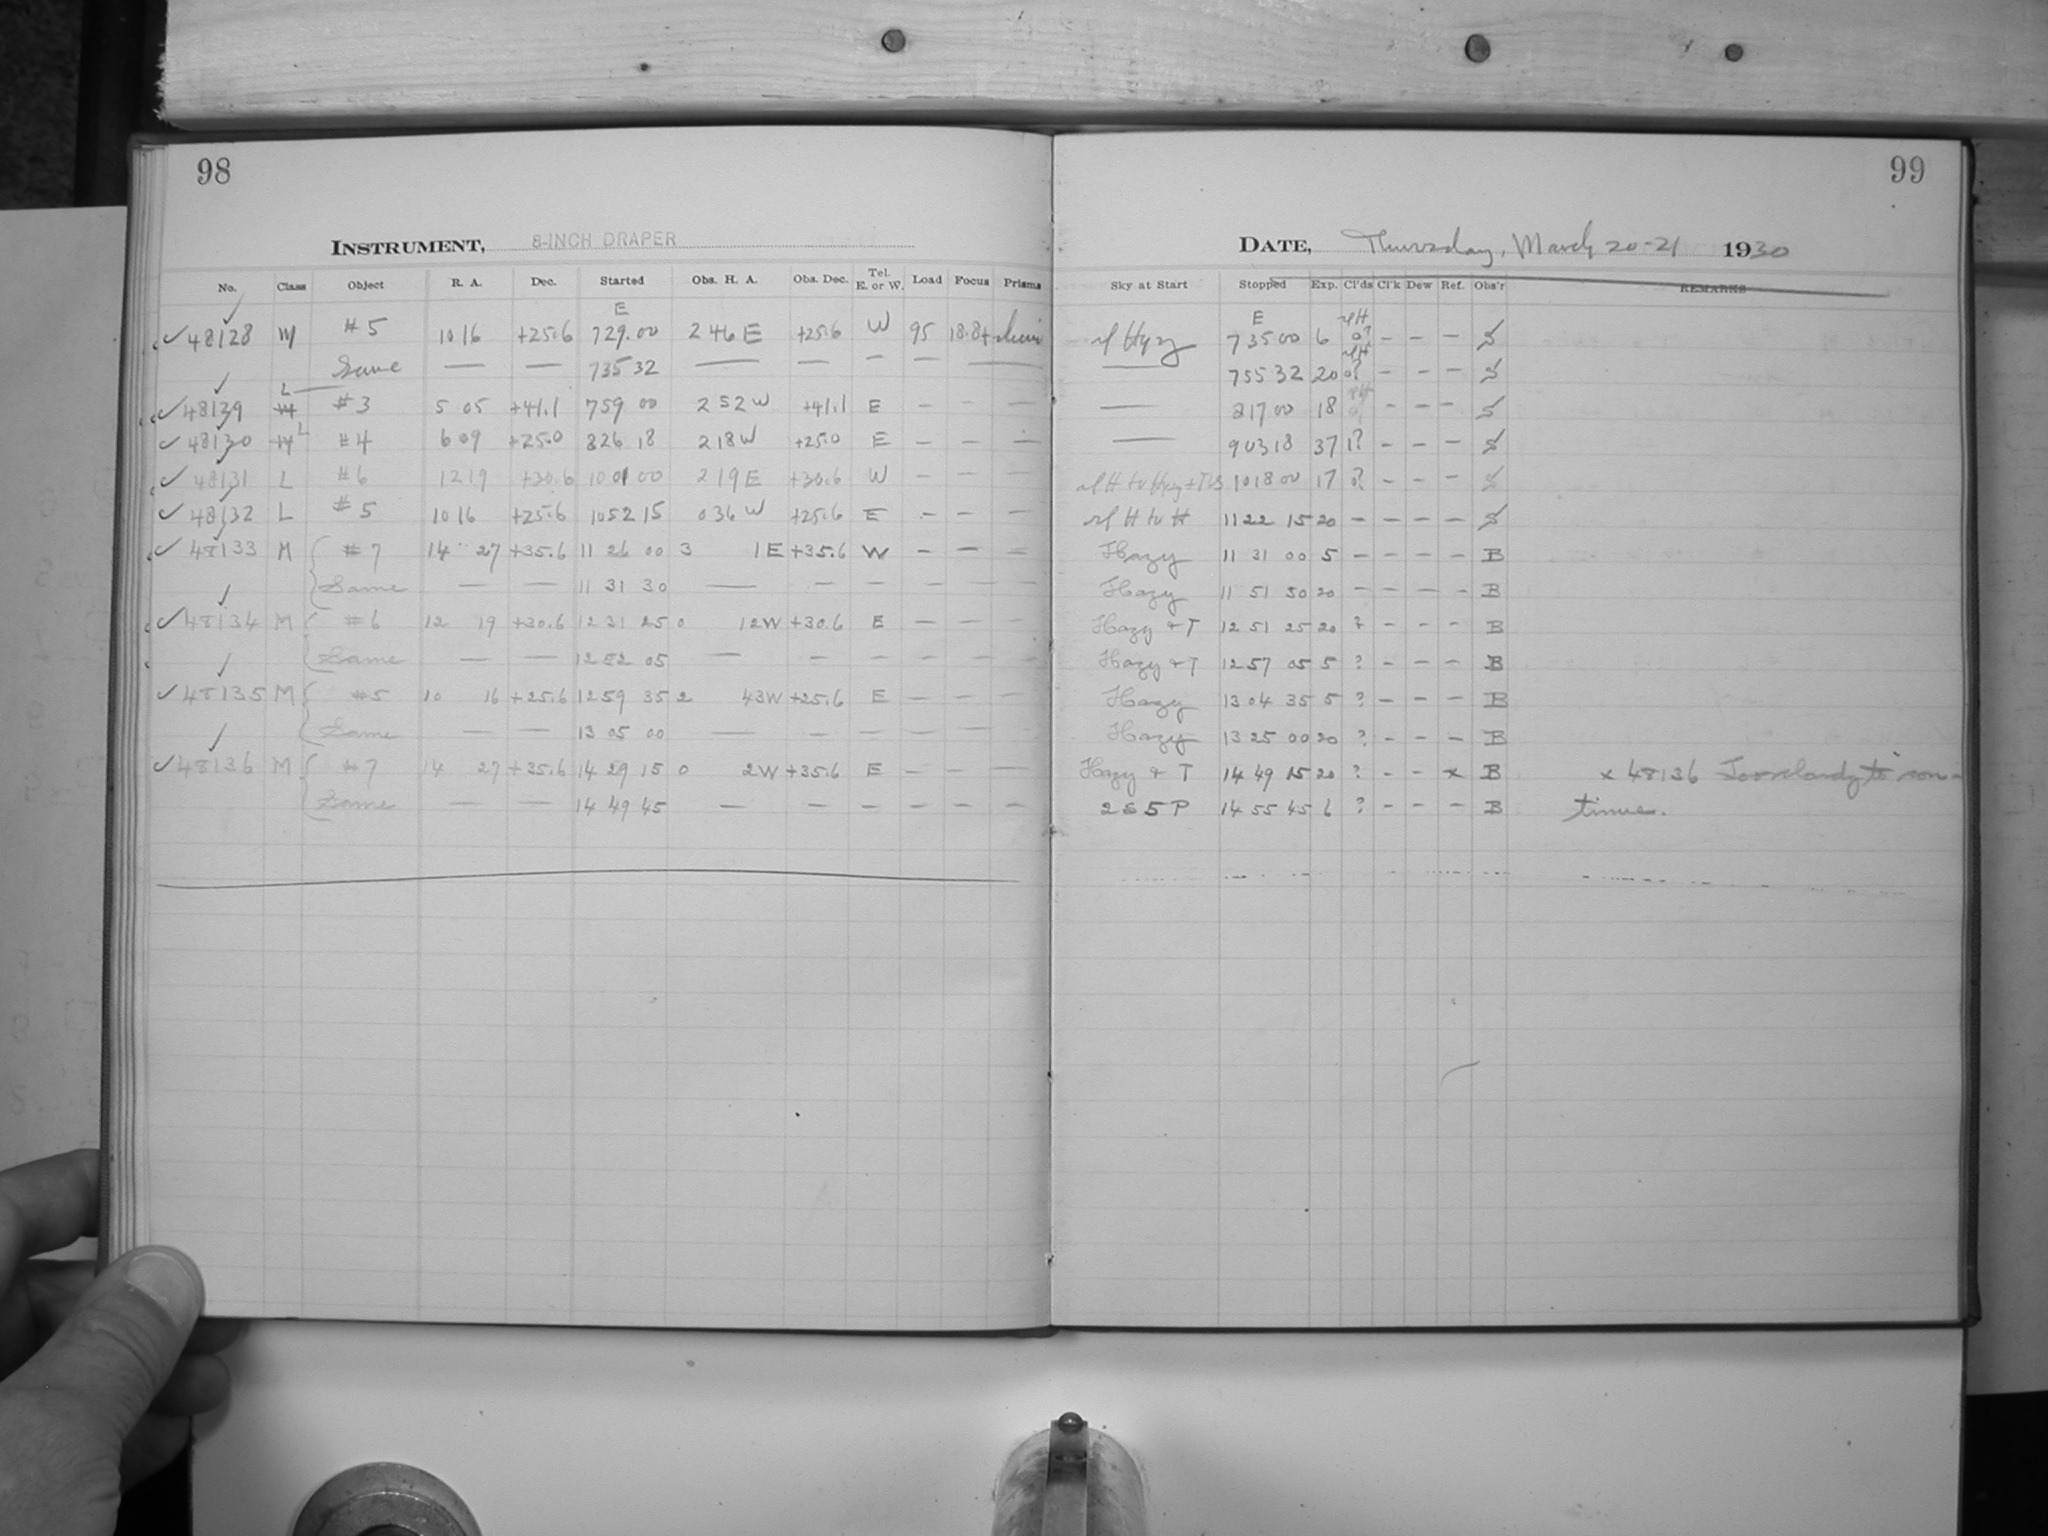 98
INSTRUMENT, 8-INCH DRAPER
No. Class Object R. A. Dec. Started Obs. H. A. Obs. Dec. Tel. E. or W. Load Focus Prisms
E
48128 M #5 10 16 +25.6 7 29.00 2 46 E +25.6 W 95 18.8+
Same — — 7 35 32 — — — — —
L
48139 M #3 5 05 +41.1 7 59 00 2 52 W +41.1 E — — —
48130 M L #4 6 09 +25.0 8 26 18 2 18 W +25.0 E — — —
48131 L #6 12 19 +30.6 10 01 00 2 19 E +30.6 W — — —
48132 L #5 10 16 +25.6 10 52 15 0 36 W +25.6 E — — —
48133 M #7 14 27 +35.6 11 26 00 3 1 E +35.6 W — — —
Same — — 11 31 30 — — — — — —
48134 M #6 12 19 +30.6 12 31 25 0 12 W +30.6 E — — —
Same — — 12 52 05 — — — — — —
48135 M #5 10 16 +25.6 12 59 35 2 43 W +25.6 E — — —
Same — — 13 05 00 — — — — — —
48136 M #7 14 27 +35.6 14 29 15 0 2 W +35.6 E — — —
Same — — 14 49 45 — — — — — —
99
DATE, Thursday, March 20-21 1930
Sky at Start Stopped Exp. Cl'ds Cl'k Dew Ref. Obs'r REMARKS
E
7 35 00 6 0? — — — S
— 7 55 32 20 0? — — — S
— 8 17 00 18 — — — S
— 9 03 18 37 1? — — — S
10 18 00 17 0? — — — S
11 22 15 20 — — — — S
Hazy 11 31 00 5 — — — — B
Hazy 11 51 30 20 — — — — B
Hazy & T 12 51 25 20 ? — — — B
Hazy & T 12 57 05 5 ? — — — B
Hazy 13 04 35 5 ? — — — B
Hazy 13 25 00 20 ? — — — B
Hazy & T 14 49 15 20 ? — — x B x 48136 Too cloudy to con-
2 S 5 P 14 55 45 6 ? — — — B tinue.